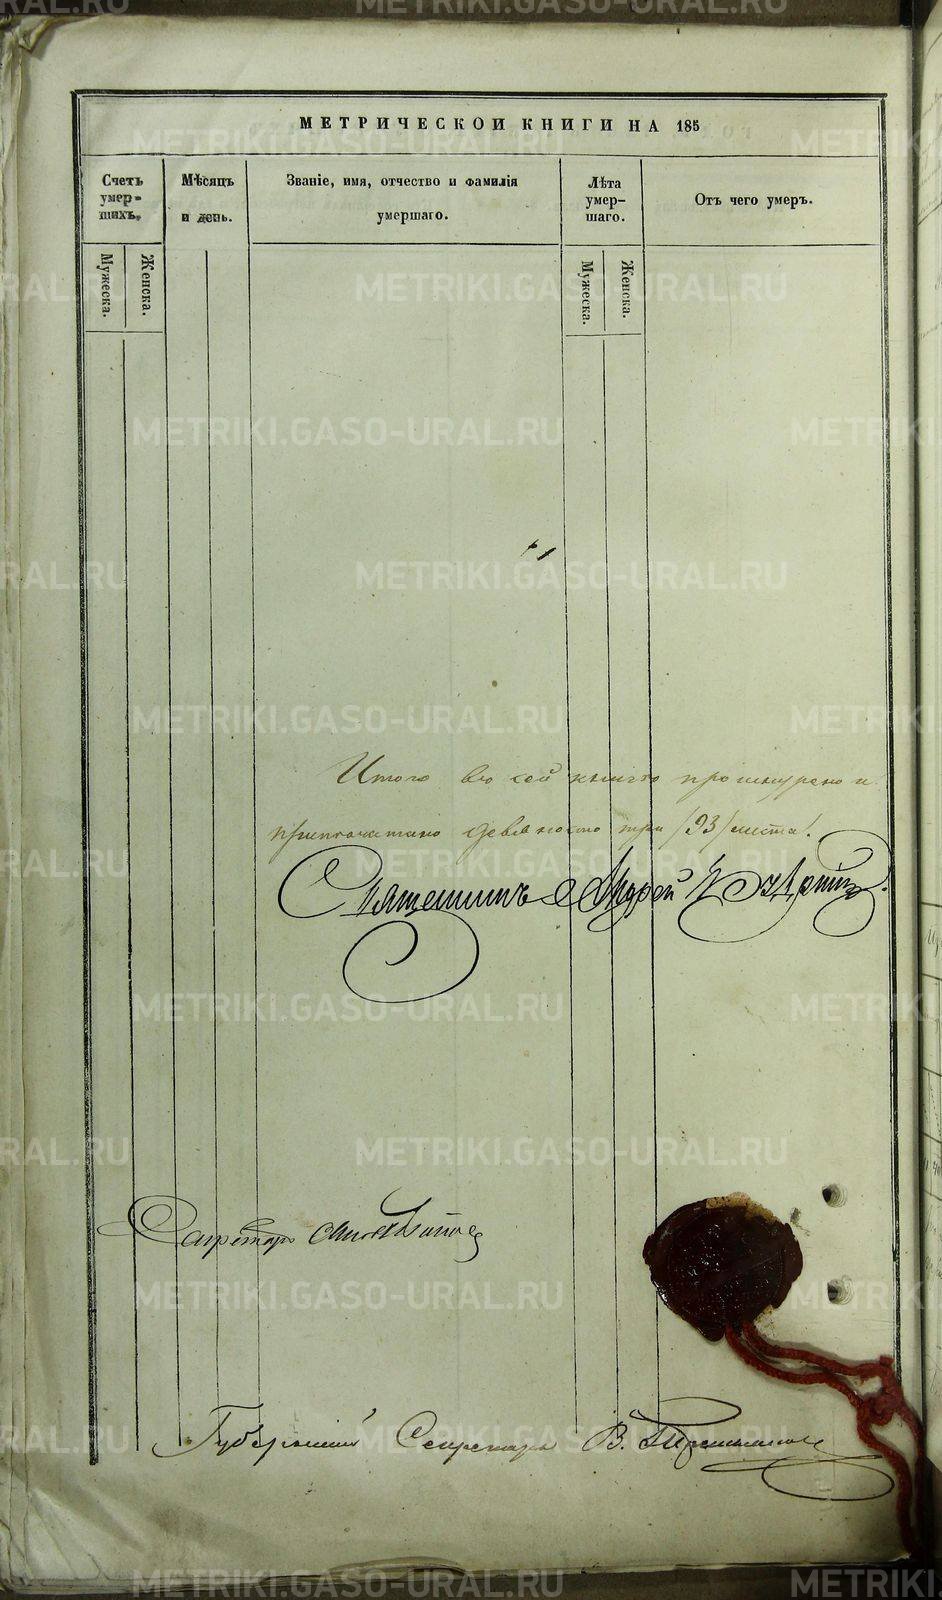 МЕТРИЧЕСКОЙ КНИГИ НА 185
Счетъ умер-шихъ.
Мѣсяцъ и день.
Званіе, имя, отчество и фамилія умершаго.
Лѣта умер-шаго.
Отъ чего умеръ.
Мужеска.
Женска.
Мужеска.
Женска.
Итого въ сей книгѣ прошнурено и
припечатано девяносто три /93/ листа.
Священникъ Андрей
Секретарь
Губернскій Секретарь В.
METRIKI.GASO-URAL.RU